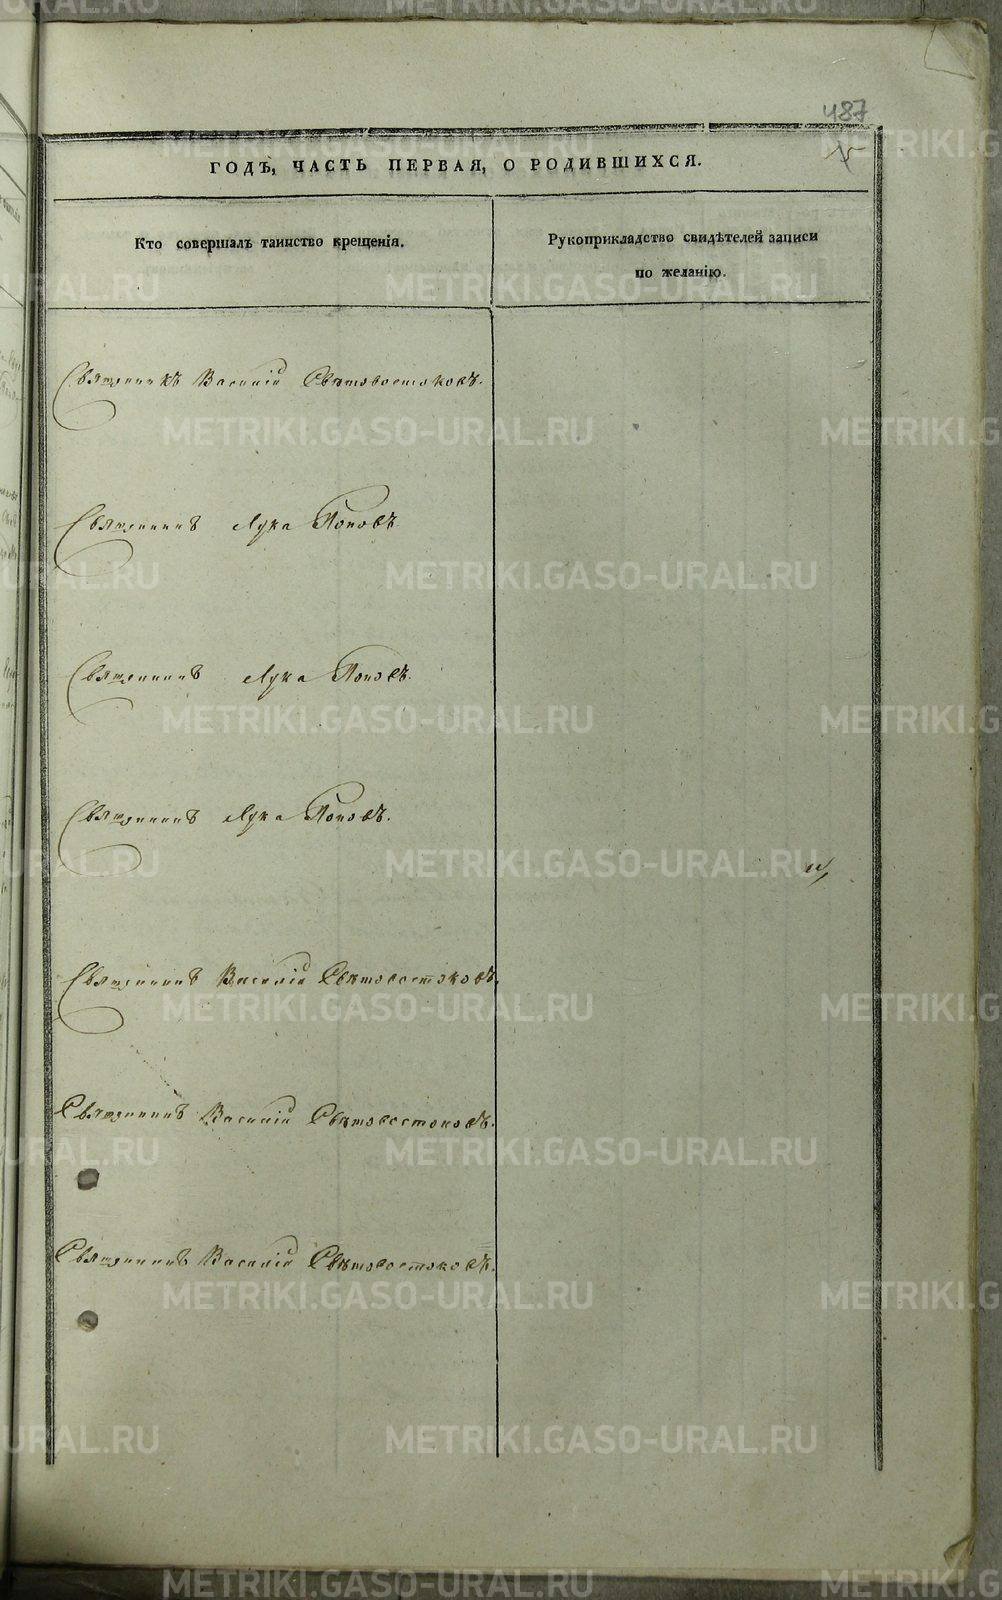 487
15
ГОДЪ, ЧАСТЬ ПЕРВАЯ, О РОДИВШИХСЯ.
Кто совершалъ таинство крещенія.
Рукоприкладство свидѣтелей записи
по желанію.
Священникъ Василій Свѣтовостоковъ.
Священникъ Лука Поповъ.
Священникъ Лука Поповъ.
Священникъ Лука Поповъ.
Священникъ Василій Свѣтовостоковъ.
Священникъ Василій Свѣтовостоковъ.
Священникъ Василій Свѣтовостоковъ.
METRIKI.GASO-URAL.RU